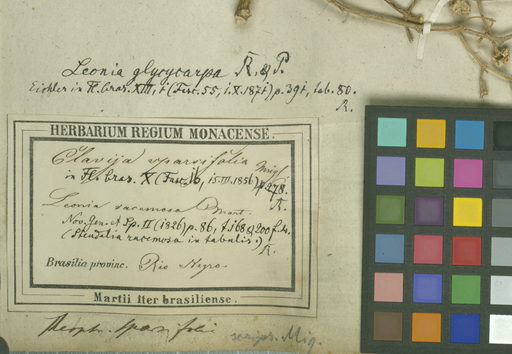 Leonia glycycarpa R. & P.
Eichler in Fl. bras. XIII, 1 (Fasc. 55, 1.X.1871) p. 391, tab. 80.
R.
HERBARIUM REGIUM MONACENSE.
Clavija sparsifolia Miq!
in Fl. bras. X (Fasc. 16, 15.III.1856) p. 278.
R.
Leonia racemosa Mart.
Nov. Gen. et Sp. II (1826) p. 86, t. 168 & 200 f. 4.
(Steudelia racemosa in tabulis!)
R.
Brasilia provinc. Rio Negro.
Martii iter brasiliense.
Theophr. sparsifolia
scrips. Miq.